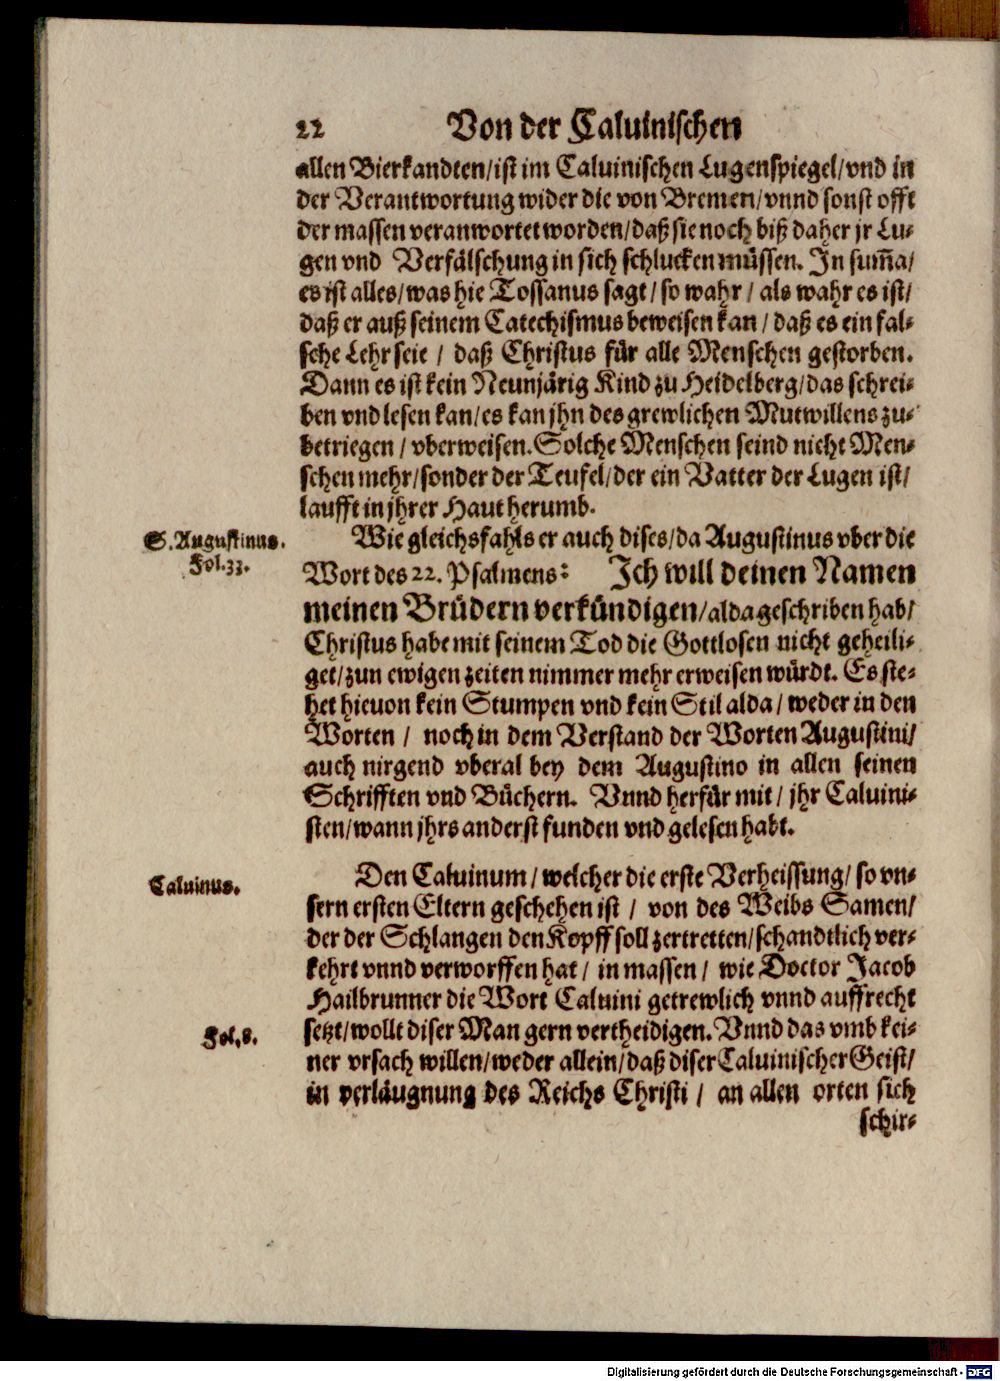 22 Von der Caluinischen
allen Bierkandten/ist im Caluinischen Lugenspiegel/vnd in
der Verantwortung wider die von Bremen/vnnd sonst offt
der massen veranwortet worden/daß sie noch biß daher jr Lu-
gen vnd Verfälschung in sich schlucken müssen. In sum̃a/
es ist alles/was hie Tossanus sagt/so wahr/als wahr es ist/
daß er auß seinem Catechismus beweisen kan/daß es ein fal-
sche Lehr seie/daß Christus für alle Menschen gestorben.
Dann es ist kein Neunjärig Kind zu Heidelberg/das schrei-
ben vnd lesen kan/es kan jhn des grewlichen Mutwillens zu-
betriegen/vberweisen. Solche Menschen seind nicht Men-
schen mehr/sonder der Teufel/der ein Vatter der Lugen ist/
laufft in jhrer Haut herumb.
S. Augustinus.
Fol. 33.
Wie gleichsfahls er auch dises/da Augustinus vber die
Wort des 22. Psalmens: Ich will deinen Namen
meinen Brüdern verkündigen/alda geschriben hab/
Christus habe mit seinem Tod die Gottlosen nicht geheili-
get/zun ewigen zeiten nimmer mehr erweisen würdt. Es ste-
het hieuon kein Stumpen vnd kein Stil alda/weder in den
Worten/noch in dem Verstand der Worten Augustini/
auch nirgend vberal bey dem Augustino in allen seinen
Schrifften vnd Büchern. Vnnd herfür mit/jhr Caluini-
sten/wann jhrs anderst funden vnd gelesen habt.
Caluinus.
Den Caluinum/welcher die erste Verheissung/so vn-
sern ersten Eltern geschehen ist/von des Weibs Samen/
der der Schlangen den Kopff soll zertretten/schandtlich ver-
kehrt vnnd verworffen hat/in massen/wie Doctor Jacob
Hailbrunner die Wort Caluini getrewlich vnnd auffrecht
Fol. 8.
setzt/wollt diser Man gern vertheidigen. Vnnd das vmb kei-
ner vrsach willen/weder allein/daß diser Caluinischer Geist/
in verläugnung des Reichs Christi/an allen orten sich
schir-
Digitalisierung gefördert durch die Deutsche Forschungsgemeinschaft - DFG